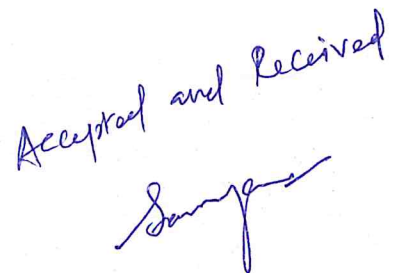 Accepted and Received